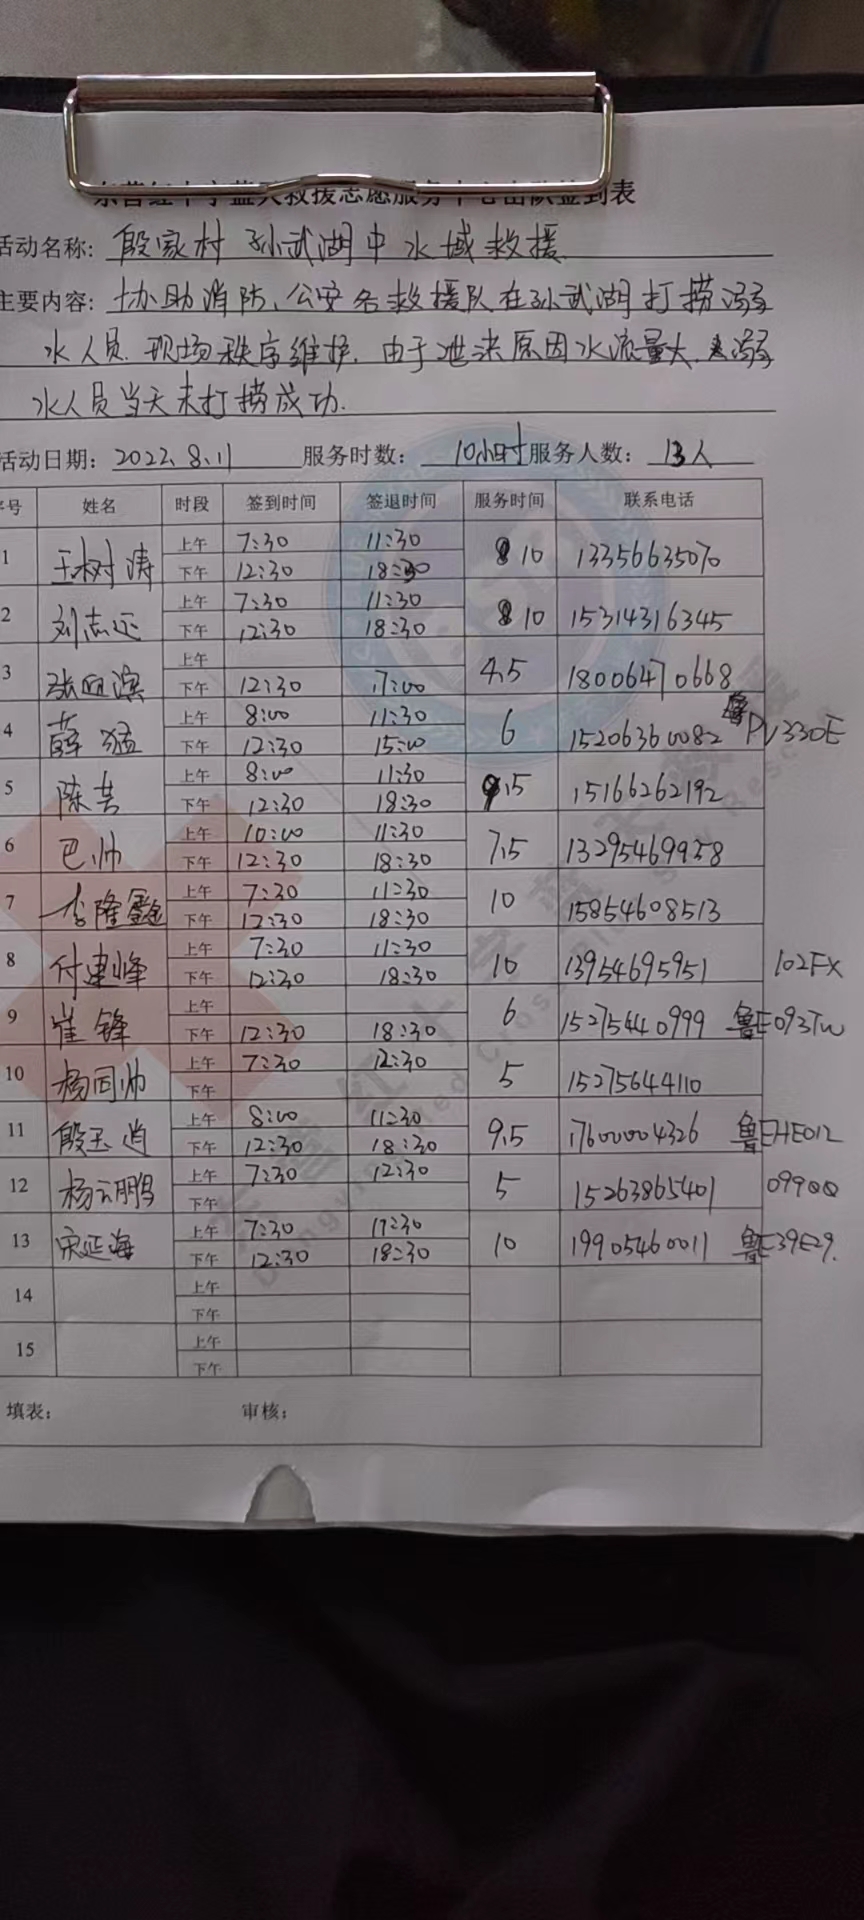 东营红十字蓝天救援志愿服务中心出队签到表
活动名称: 殷家村 孙武湖中 水域救援
主要内容: 协助消防、公安各救援队在孙武湖打捞溺
水人员. 现场秩序维护. 由于泄洪原因水流量大. 溺
水人员当天未打捞成功.
活动日期: 2022.8.11 服务时数: 10小时 服务人数: 13人
序号 姓名 时段 签到时间 签退时间 服务时间 联系电话
1 王树涛 上午 7:30 11:30 10 13356635070
下午 12:30 18:30
2 刘志正 上午 7:30 11:30 10 15314316345
下午 12:30 18:30
3 张 滨 上午 4.5 18006470668
下午 12:30 17:00
4 薛猛 上午 8:00 11:30 6 15206360082 PV330E
下午 12:30 15:00
5 陈芸 上午 8:00 11:30 9.5 15166262192
下午 12:30 18:30
6 巴帅 上午 10:00 11:30 7.5 13295469958
下午 12:30 18:30
7 李隆鑫 上午 7:30 11:30 10 15854608513
下午 12:30 18:30
8 付建峰 上午 7:30 11:30 10 13954695951 102FX
下午 12:30 18:30
9 崔锋 上午 6 15275440999 鲁E093TW
下午 12:30 18:30
10 杨同帅 上午 7:30 12:30 5 15275644110
下午
11 殷玉 上午 8:00 11:30 9.5 17600004326 鲁EHE012
下午 12:30 18:30
12 杨云鹏 上午 7:30 12:30 5 15263865401 099QQ
下午
13 宋延海 上午 7:30 11:30 10 19905460011 鲁E39E29.
下午 12:30 18:30
14 上午
下午
15 上午
下午
填表: 审核: